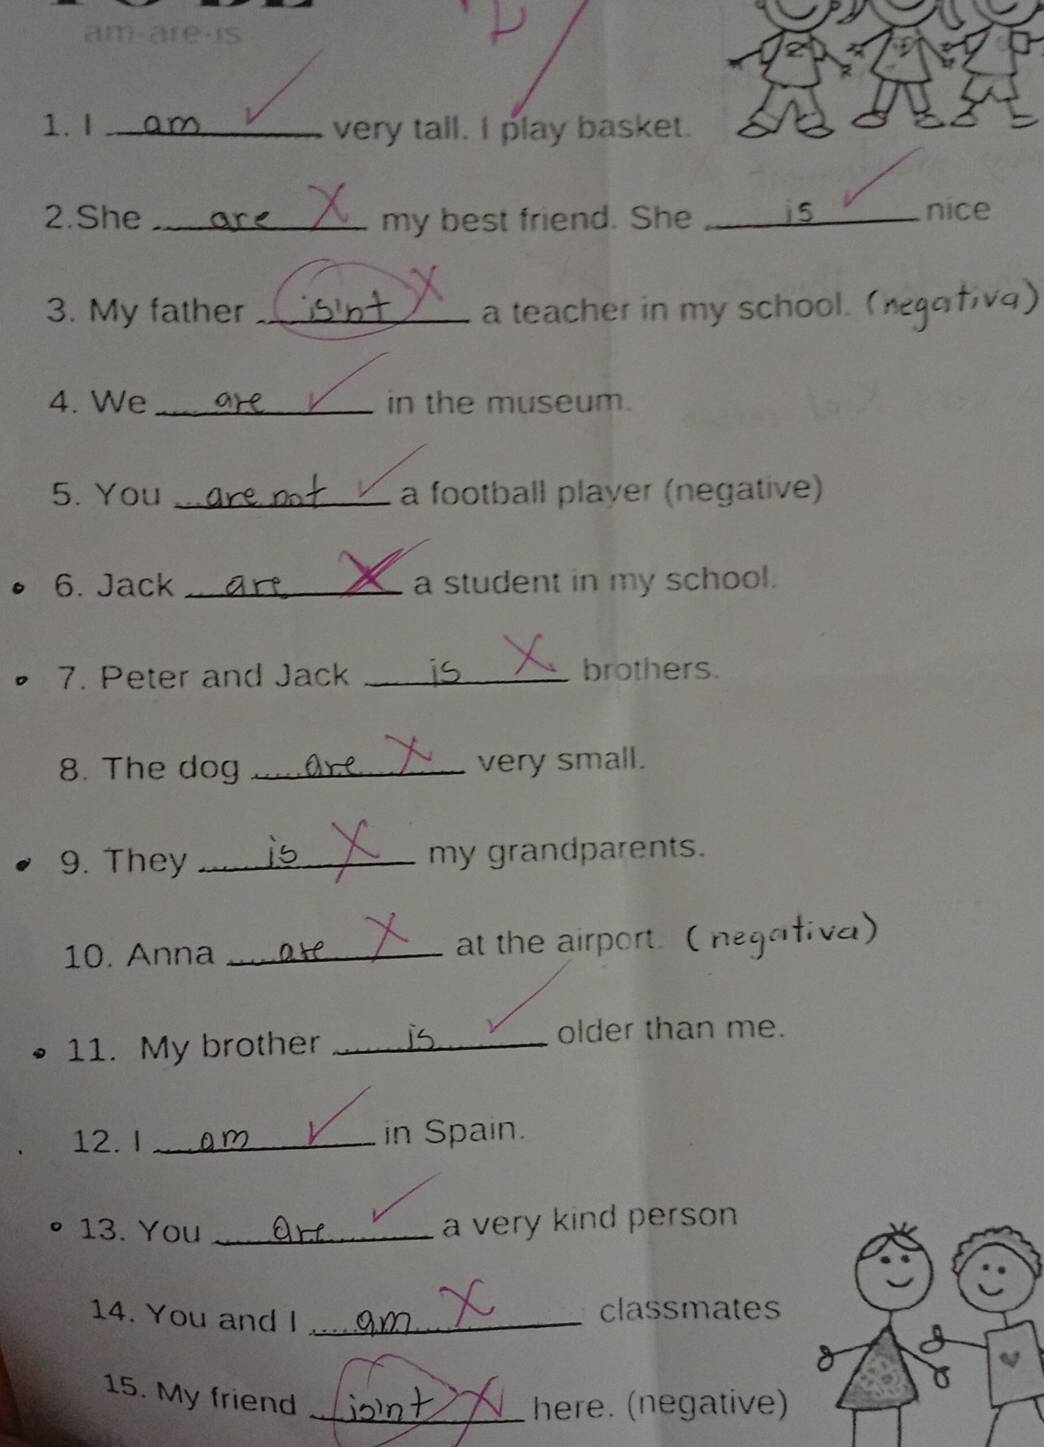 am-are-is
1. I am very tall. I play basket.
2.She are my best friend. She is nice
3. My father is'nt a teacher in my school. (negativa)
4. We are in the museum.
5. You are not a football player (negative)
6. Jack are a student in my school.
7. Peter and Jack is brothers.
8. The dog are very small.
9. They is my grandparents.
10. Anna are at the airport. (negativa)
11. My brother is older than me.
12. I am in Spain.
13. You are a very kind person
14. You and I am classmates
15. My friend is'nt here. (negative)